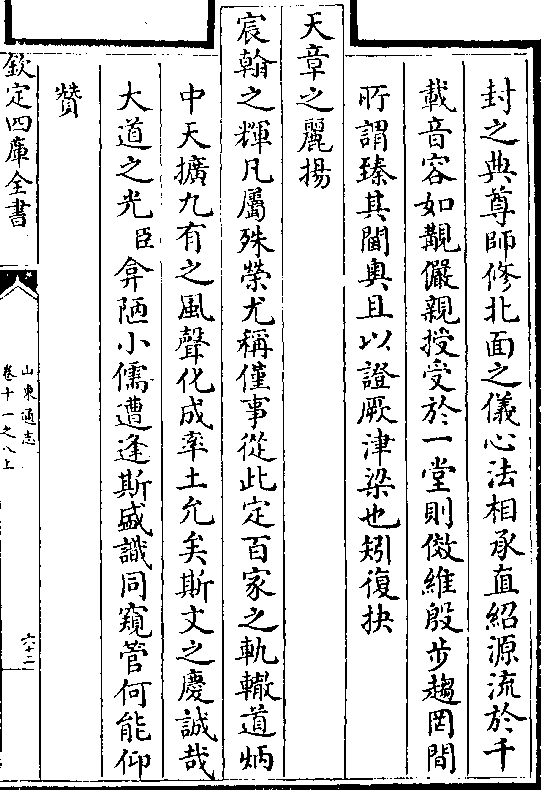 封之典尊師修北面之儀心法相承直紹源流於千
載音容如覿儼親授受於一堂則傚維殷步趨罔間
所謂臻其閫奥且以證厥津梁也矧復抉
天章之麗揚
宸翰之輝凡屬殊榮尤稱僅事從此定百家之軌轍道炳
中天擴九有之風聲化成率土允矣斯文之慶誠哉
大道之光臣弇陋小儒遭逢斯盛識同窺管何能仰
贊
欽定四庫全書
山東通志
卷十一之八上
六十二